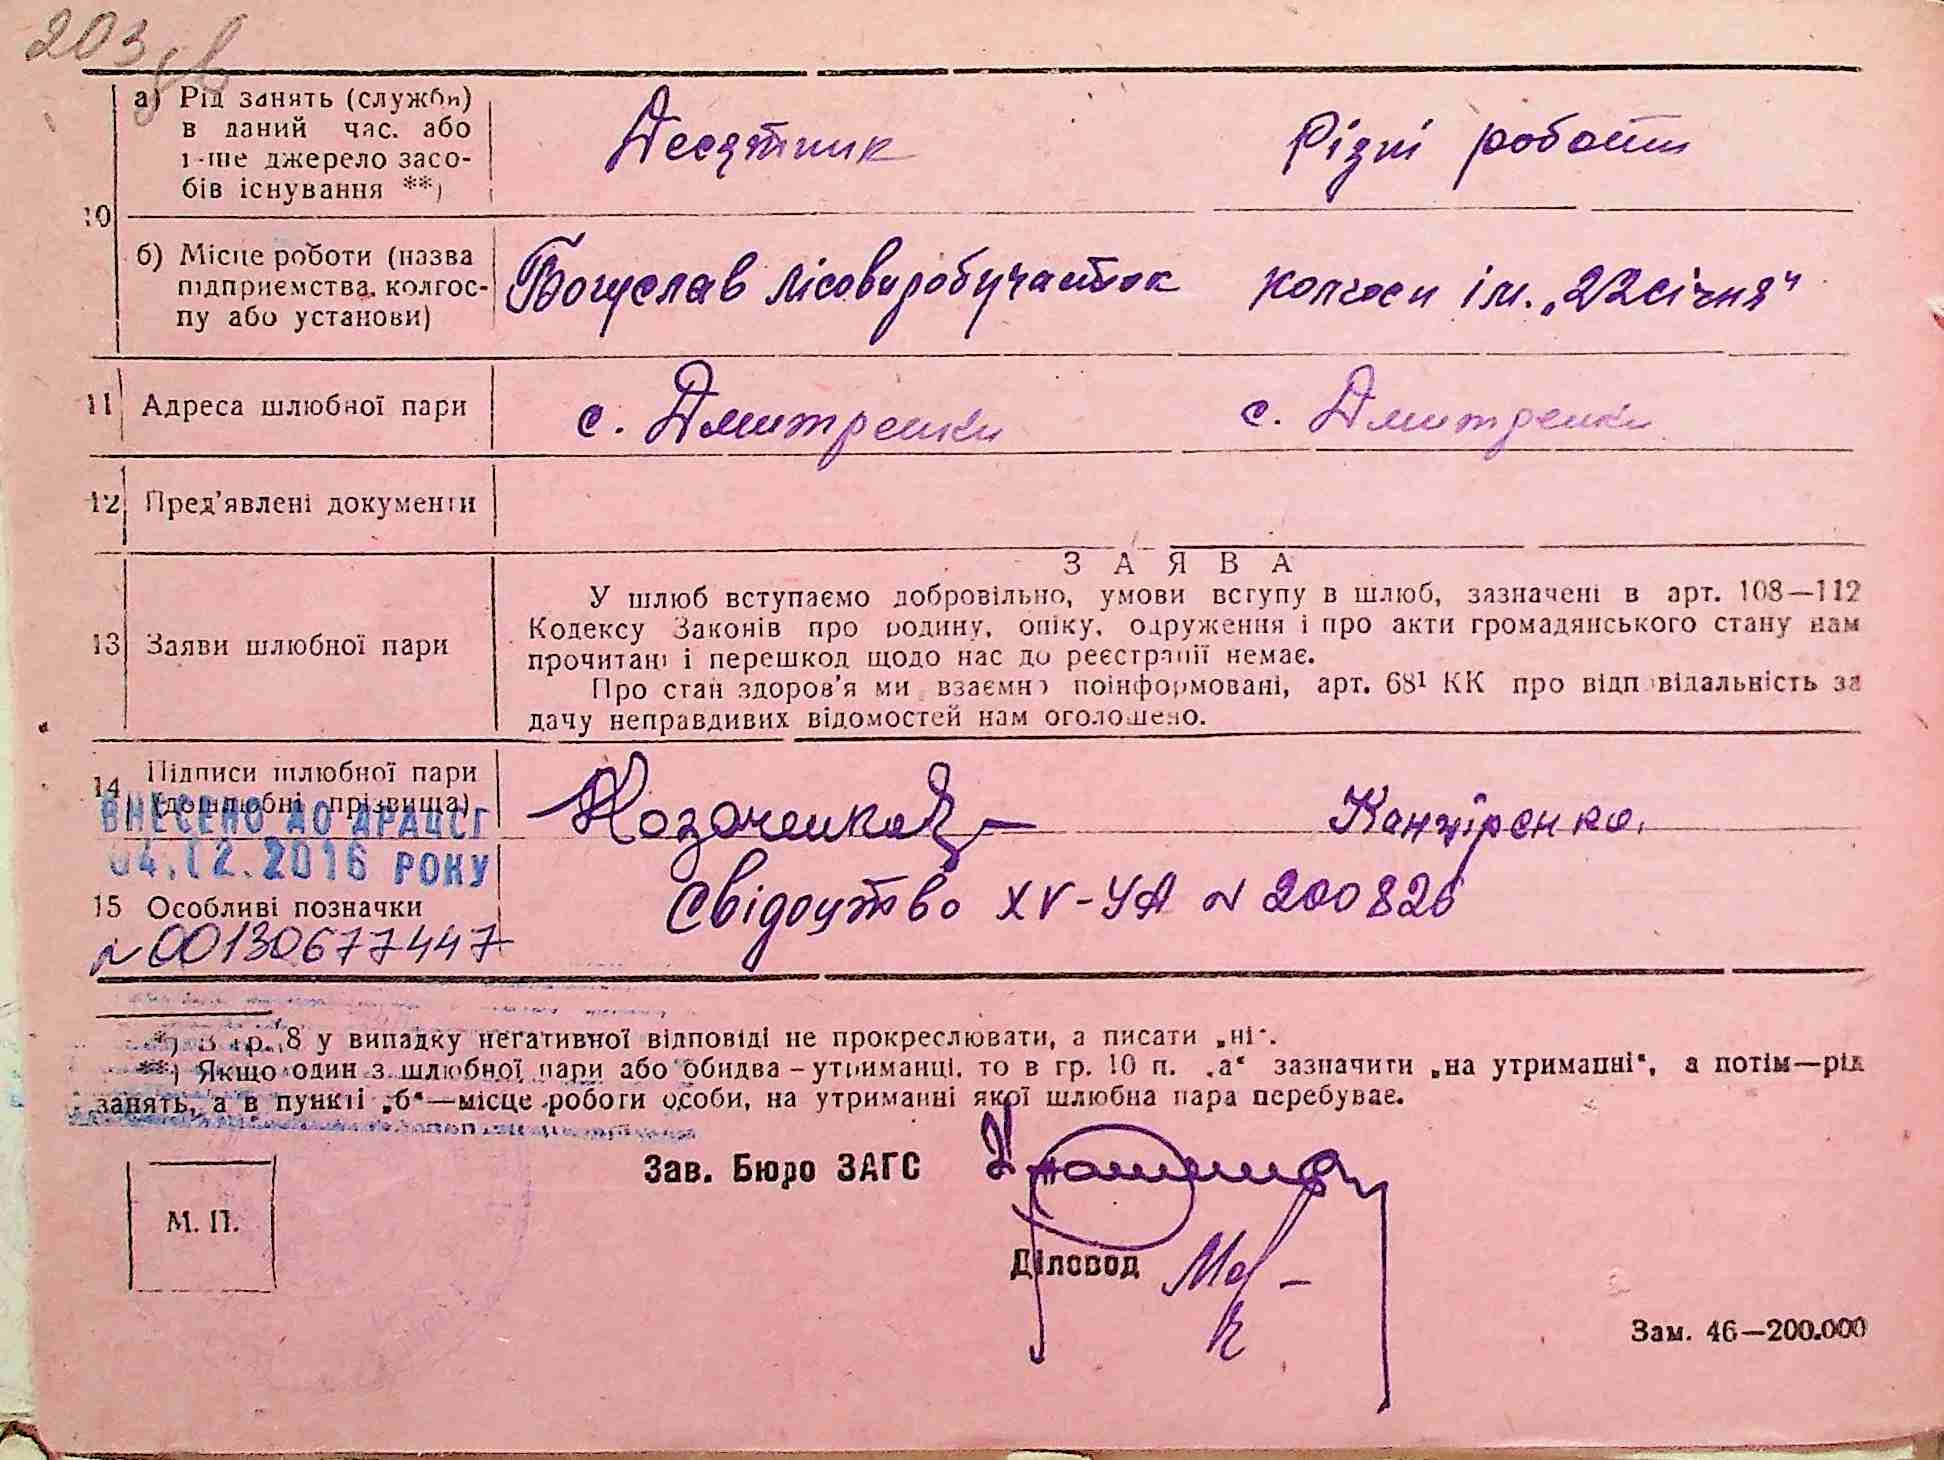 203 зв
10
а) Рід занять (служби)
в даний час. або
інше джерело засо-
бів існування **)
Десятник
Різні роботи
б) Місце роботи (назва
підприємства, колгос-
пу або установи)
Богуслав лісовиробучасток
колгосп ім. „22 січня"
11 Адреса шлюбної пари
с. Дмитренки
с. Дмитренки
12 Пред'явлені документи
13 Заяви шлюбної пари
ЗАЯВА
У шлюб вступаємо добровільно, умови вступу в шлюб, зазначені в арт. 108—112
Кодексу Законів про родину, опіку, одруження і про акти громадянського стану нам
прочитані і перешкод щодо нас до реєстрації немає.
Про стан здоров'я ми взаємно поінформовані, арт. 68¹ КК про відповідальність за
дачу неправдивих відомостей нам оголошено.
14 Підписи шлюбної пари
(дошлюбні прізвища)
Козаченко
ВНЕСЕНО ДО ДРАЦСГ
04.12.2016 РОКУ
15 Особливі позначки
Свідоцтво XV-УА N 200826
N 00130677447
*) В гр. 8 у випадку негативної відповіді не прокреслювати, а писати „ні".
**) Якщо один з шлюбної пари або обидва – утриманці, то в гр. 10 п. „а" зазначити „на утриманні", а потім—рід
занять, а в пункті „б"—місце роботи особи, на утриманні якої шлюбна пара перебуває.
Зав. Бюро ЗАГС
М. П.
Діловод
Зам. 46—200.000